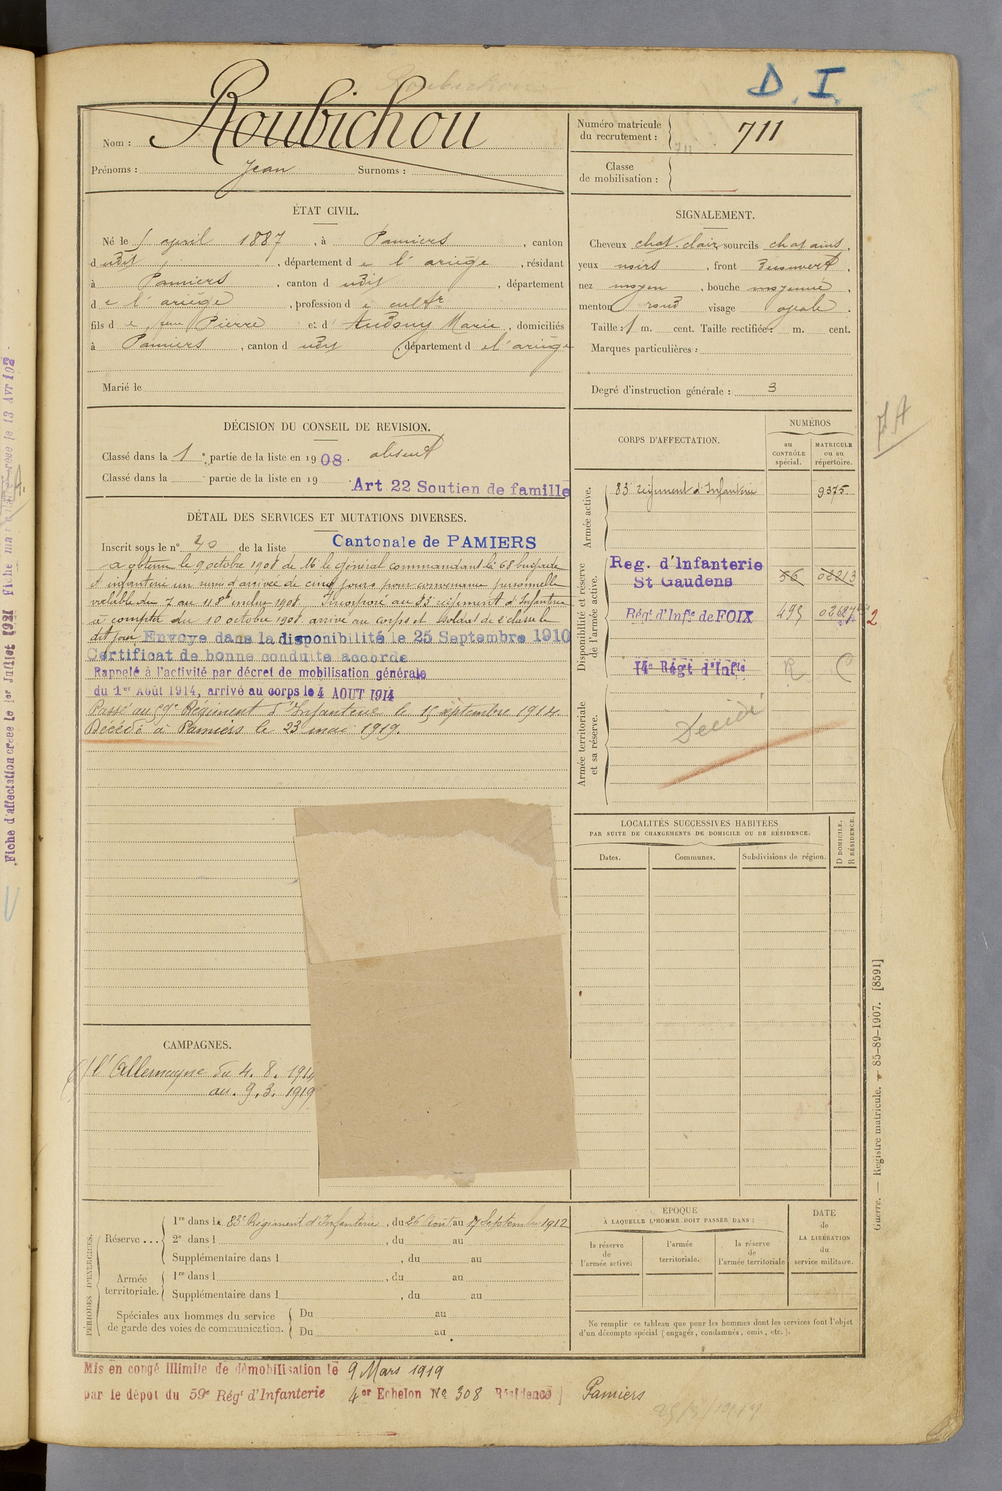 D. I.
Roubichou
Nom :
Prénoms : Jean Surnoms :
Numéro matricule
du recrutement : 711
Classe
de mobilisation :
ÉTAT CIVIL.
Né le avril 1887, à Pamiers, canton
dudit, département de l'ariège, résidant
à Pamiers, canton dudit, département
de l'ariège, profession de cultr
fils de feu Pierre et d' Marie, domiciliés
à Pamiers, canton dudit, département de l'ariège
Marié le
SIGNALEMENT.
Cheveux chat. clair, sourcils chatains,
yeux noirs, front découvert,
nez moyen, bouche moyenne,
menton rond visage ovale.
Taille : 1 m. cent. Taille rectifiée : m. cent.
Marques particulières :
Degré d'instruction générale : 3
DÉCISION DU CONSEIL DE REVISION.
Classé dans la 1e partie de la liste en 1908. absent
Classé dans la partie de la liste en 19
Art 22 Soutien de famille
DÉTAIL DES SERVICES ET MUTATIONS DIVERSES.
Inscrit sous le n° 40 de la liste Cantonale de PAMIERS
a obtenu le 9 octobre 1908 de M. le Général commandant la 68e brigade
d'infanterie un sursis d'arrivée de cinq jours pour convenance personnelle
valable du 7 au 11 8bre inclus 1908. Incorporé au 83e régiment d'Infanterie
à compter du 10 octobre 1908. arrivé au corps et soldat de 2e classe le
dit jour. Envoyé dans la disponibilité le 25 Septembre 1910
Certificat de bonne conduite accordé
Rappelé à l'activité par décret de mobilisation générale
du 1er Août 1914, arrivé au corps le 4 AOUT 1914
Passé au 59e Régiment d'Infanterie le 15 septembre 1914
Décédé à Pamiers le 23 mai 1919.
CORPS D'AFFECTATION.
NUMÉROS
au
CONTRÔLE
spécial.
MATRICULE
ou au
répertoire.
Armée active.
83e régiment d'Infanterie 9375
Disponibilité et réserve
de l'armée active.
Reg. d'Infanterie
St Gaudens 56 08213
Régt d'Infie de FOIX 495
14e Régt d'Infie R
Armée territoriale
et sa réserve.
Décédé
LOCALITÉS SUCCESSIVES HABITÉES
PAR SUITE DE CHANGEMENTS DE DOMICILE OU DE RÉSIDENCE.
Dates. Communes. Subdivisions de région.
D DOMICILE.
R RÉSIDENCE.
CAMPAGNES.
C/ l'Allemagne du 4. 8. 1914
au. 9. 3. 1919
PÉRIODES D'EXERCICES.
Réserve ...
1re dans le 83e Régiment d'Infanterie, du 26 Août au 17 Septembre 1912
2e dans l , du au
Supplémentaire dans l , du au
Armée
territoriale.
1re dans l , du au
Supplémentaire dans l , du au
Spéciales aux hommes du service
de garde des voies de communication.
Du au
Du au
ÉPOQUE
À LAQUELLE L'HOMME DOIT PASSER DANS :
la réserve
de
l'armée active.
l'armée
territoriale.
la réserve
de
l'armée territoriale
DATE
de
LA LIBÉRATION
du
service militaire.
Ne remplir ce tableau que pour les hommes dont les services font l'objet
d'un décompte spécial (engagés, condamnés, omis, etc.).
Mis en congé illimité de démobilisation le 9 Mars 1919
par le dépôt du 59e Régt d'Infanterie 4er Echelon No 308 Résidence Pamiers
Guerre. — Registre matricule. — 85-89-1907. [8591]